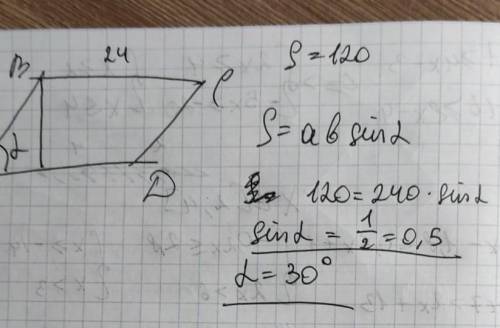 24
B
C
α
D
S=120
S=ab sinα
120=240·sinα
sinα = 1/2 = 0,5
α=30°